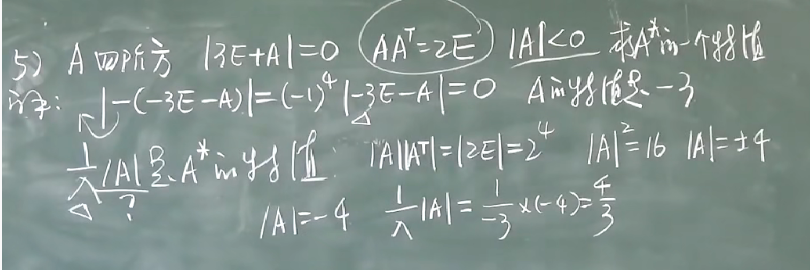 5) A 四阶方 |3E+A|=0 AAᵀ=2E |A|<0 求A*的一个特值
|-(-3E-A)|=(-1)⁴|-3E-A|=0 A的特值是-3
1/λ|A|是A*的特值. |A||Aᵀ|=|2E|=2⁴ |A|²=16 |A|=±4
?
|A|=-4 1/λ|A|=1/-3×(-4)=4/3